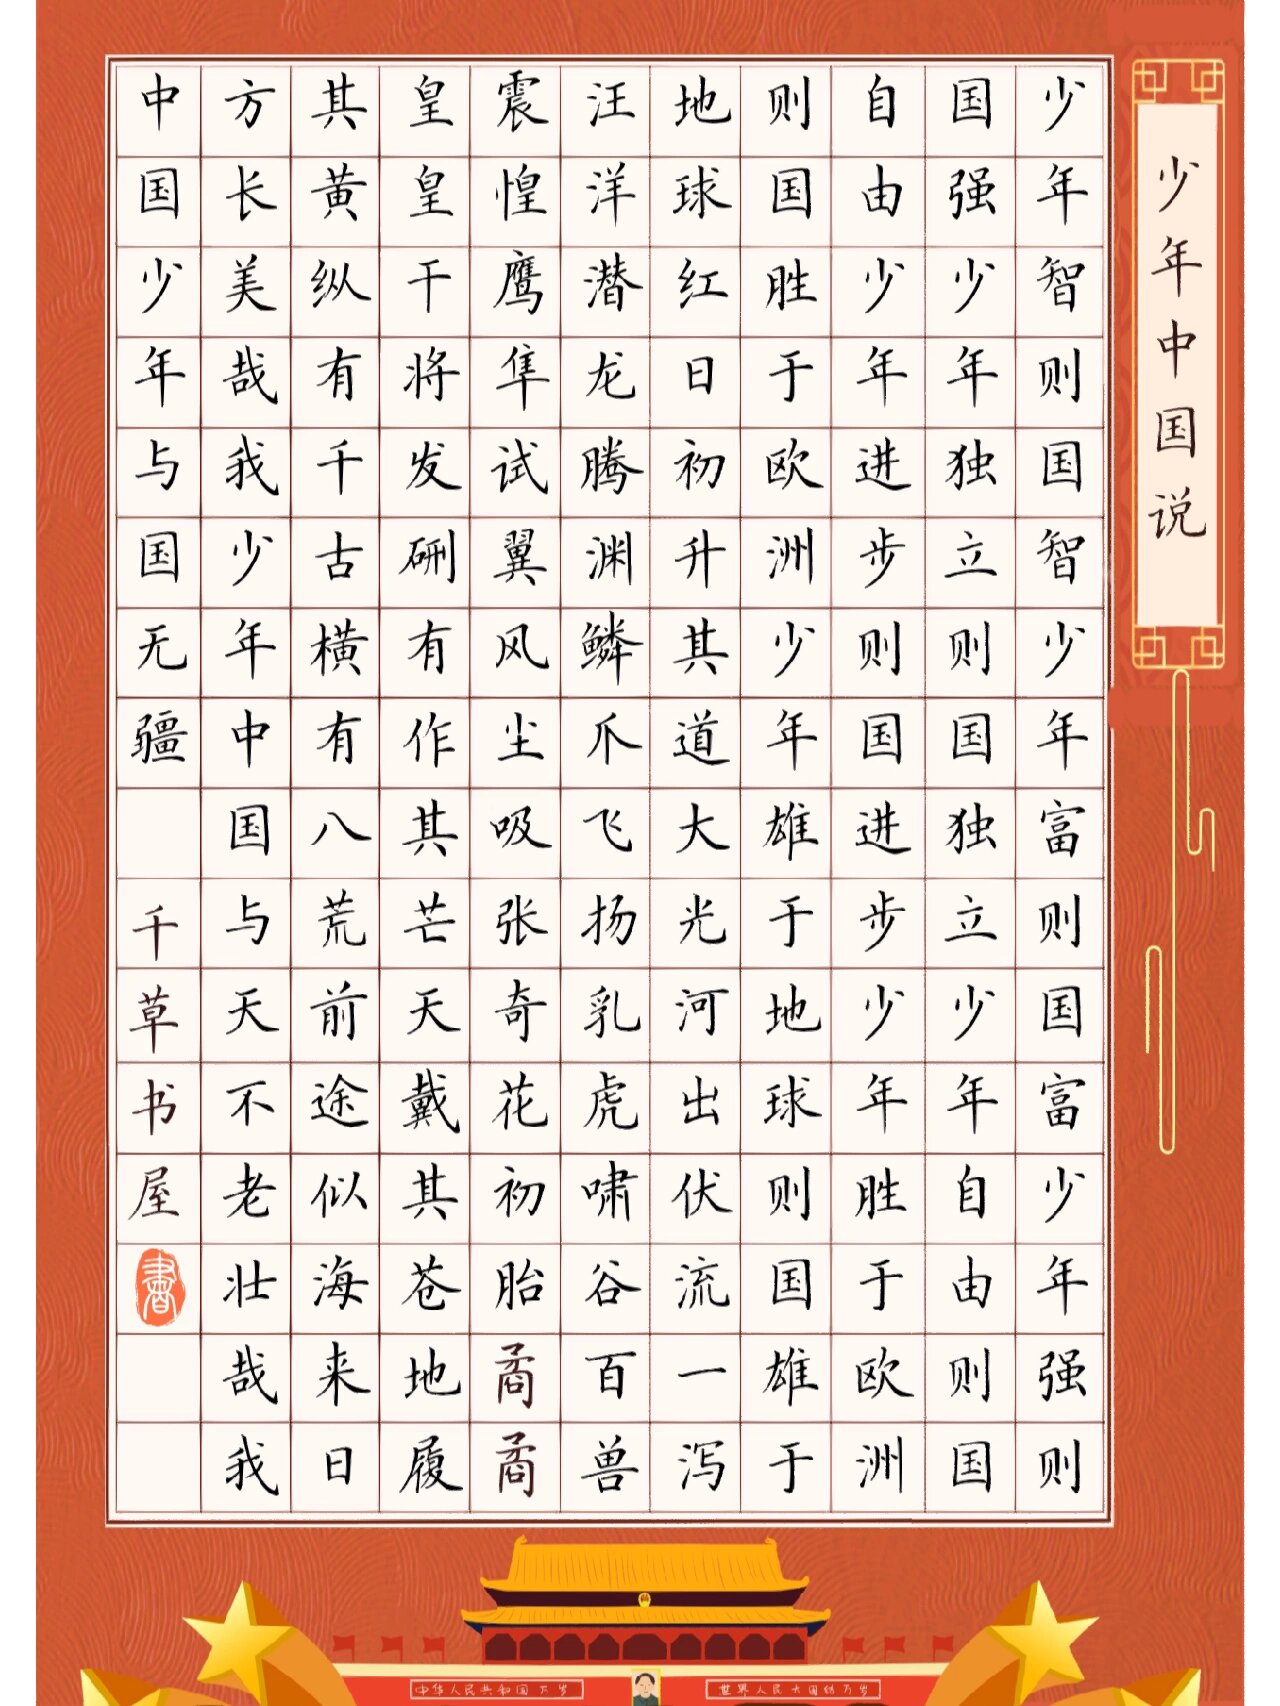 少年中国说
少年智则国智少年富则国富少年强则
国强少年独立则国独立少年自由则国
自由少年进步则国进步少年胜于欧洲
则国胜于欧洲少年雄于地球则国雄于
地球红日初升其道大光河出伏流一泻
汪洋潜龙腾渊鳞爪飞扬乳虎啸谷百兽
震惶鹰隼试翼风尘吸张奇花初胎矞矞
皇皇干将发硎有作其芒天戴其苍地履
其黄纵有千古横有八荒前途似海来日
方长美哉我少年中国与天不老壮哉我
中国少年与国无疆
千草书屋
書
中华人民共和国万岁
世界人民大团结万岁